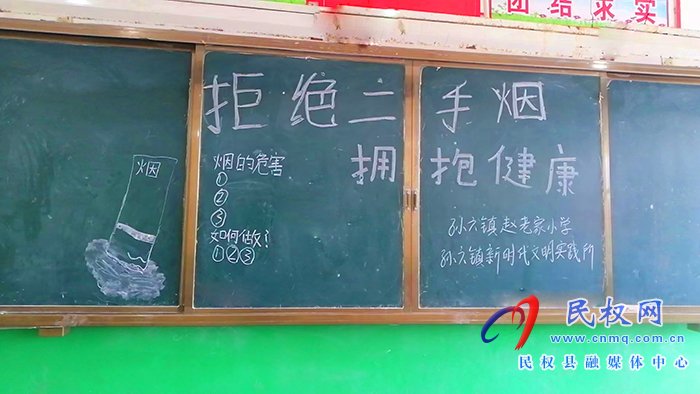 团结求实
拒绝二手烟
拥抱健康
烟
烟的危害
①
②
③
如何做?
①②③
孙六镇赵老家小学
孙六镇新时代文明实践所
民权网
www.cnmq.com.cn
民权县融媒体中心